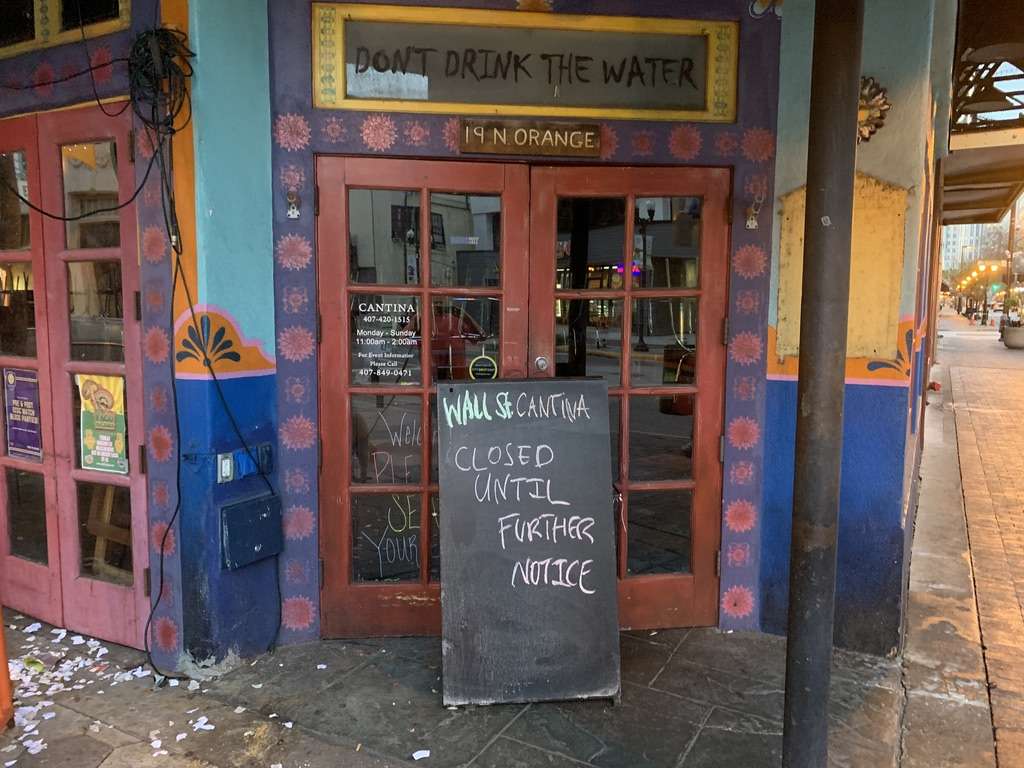 DON'T DRINK THE WATER
19 N. ORANGE
CANTINA
407-420-1515
Monday - Sunday
11:00am - 2:00am
For Event Information
Please Call
407-849-0471
WALL St. CANTINA
CLOSED
UNTIL
FURTHER
NOTICE
YOUR